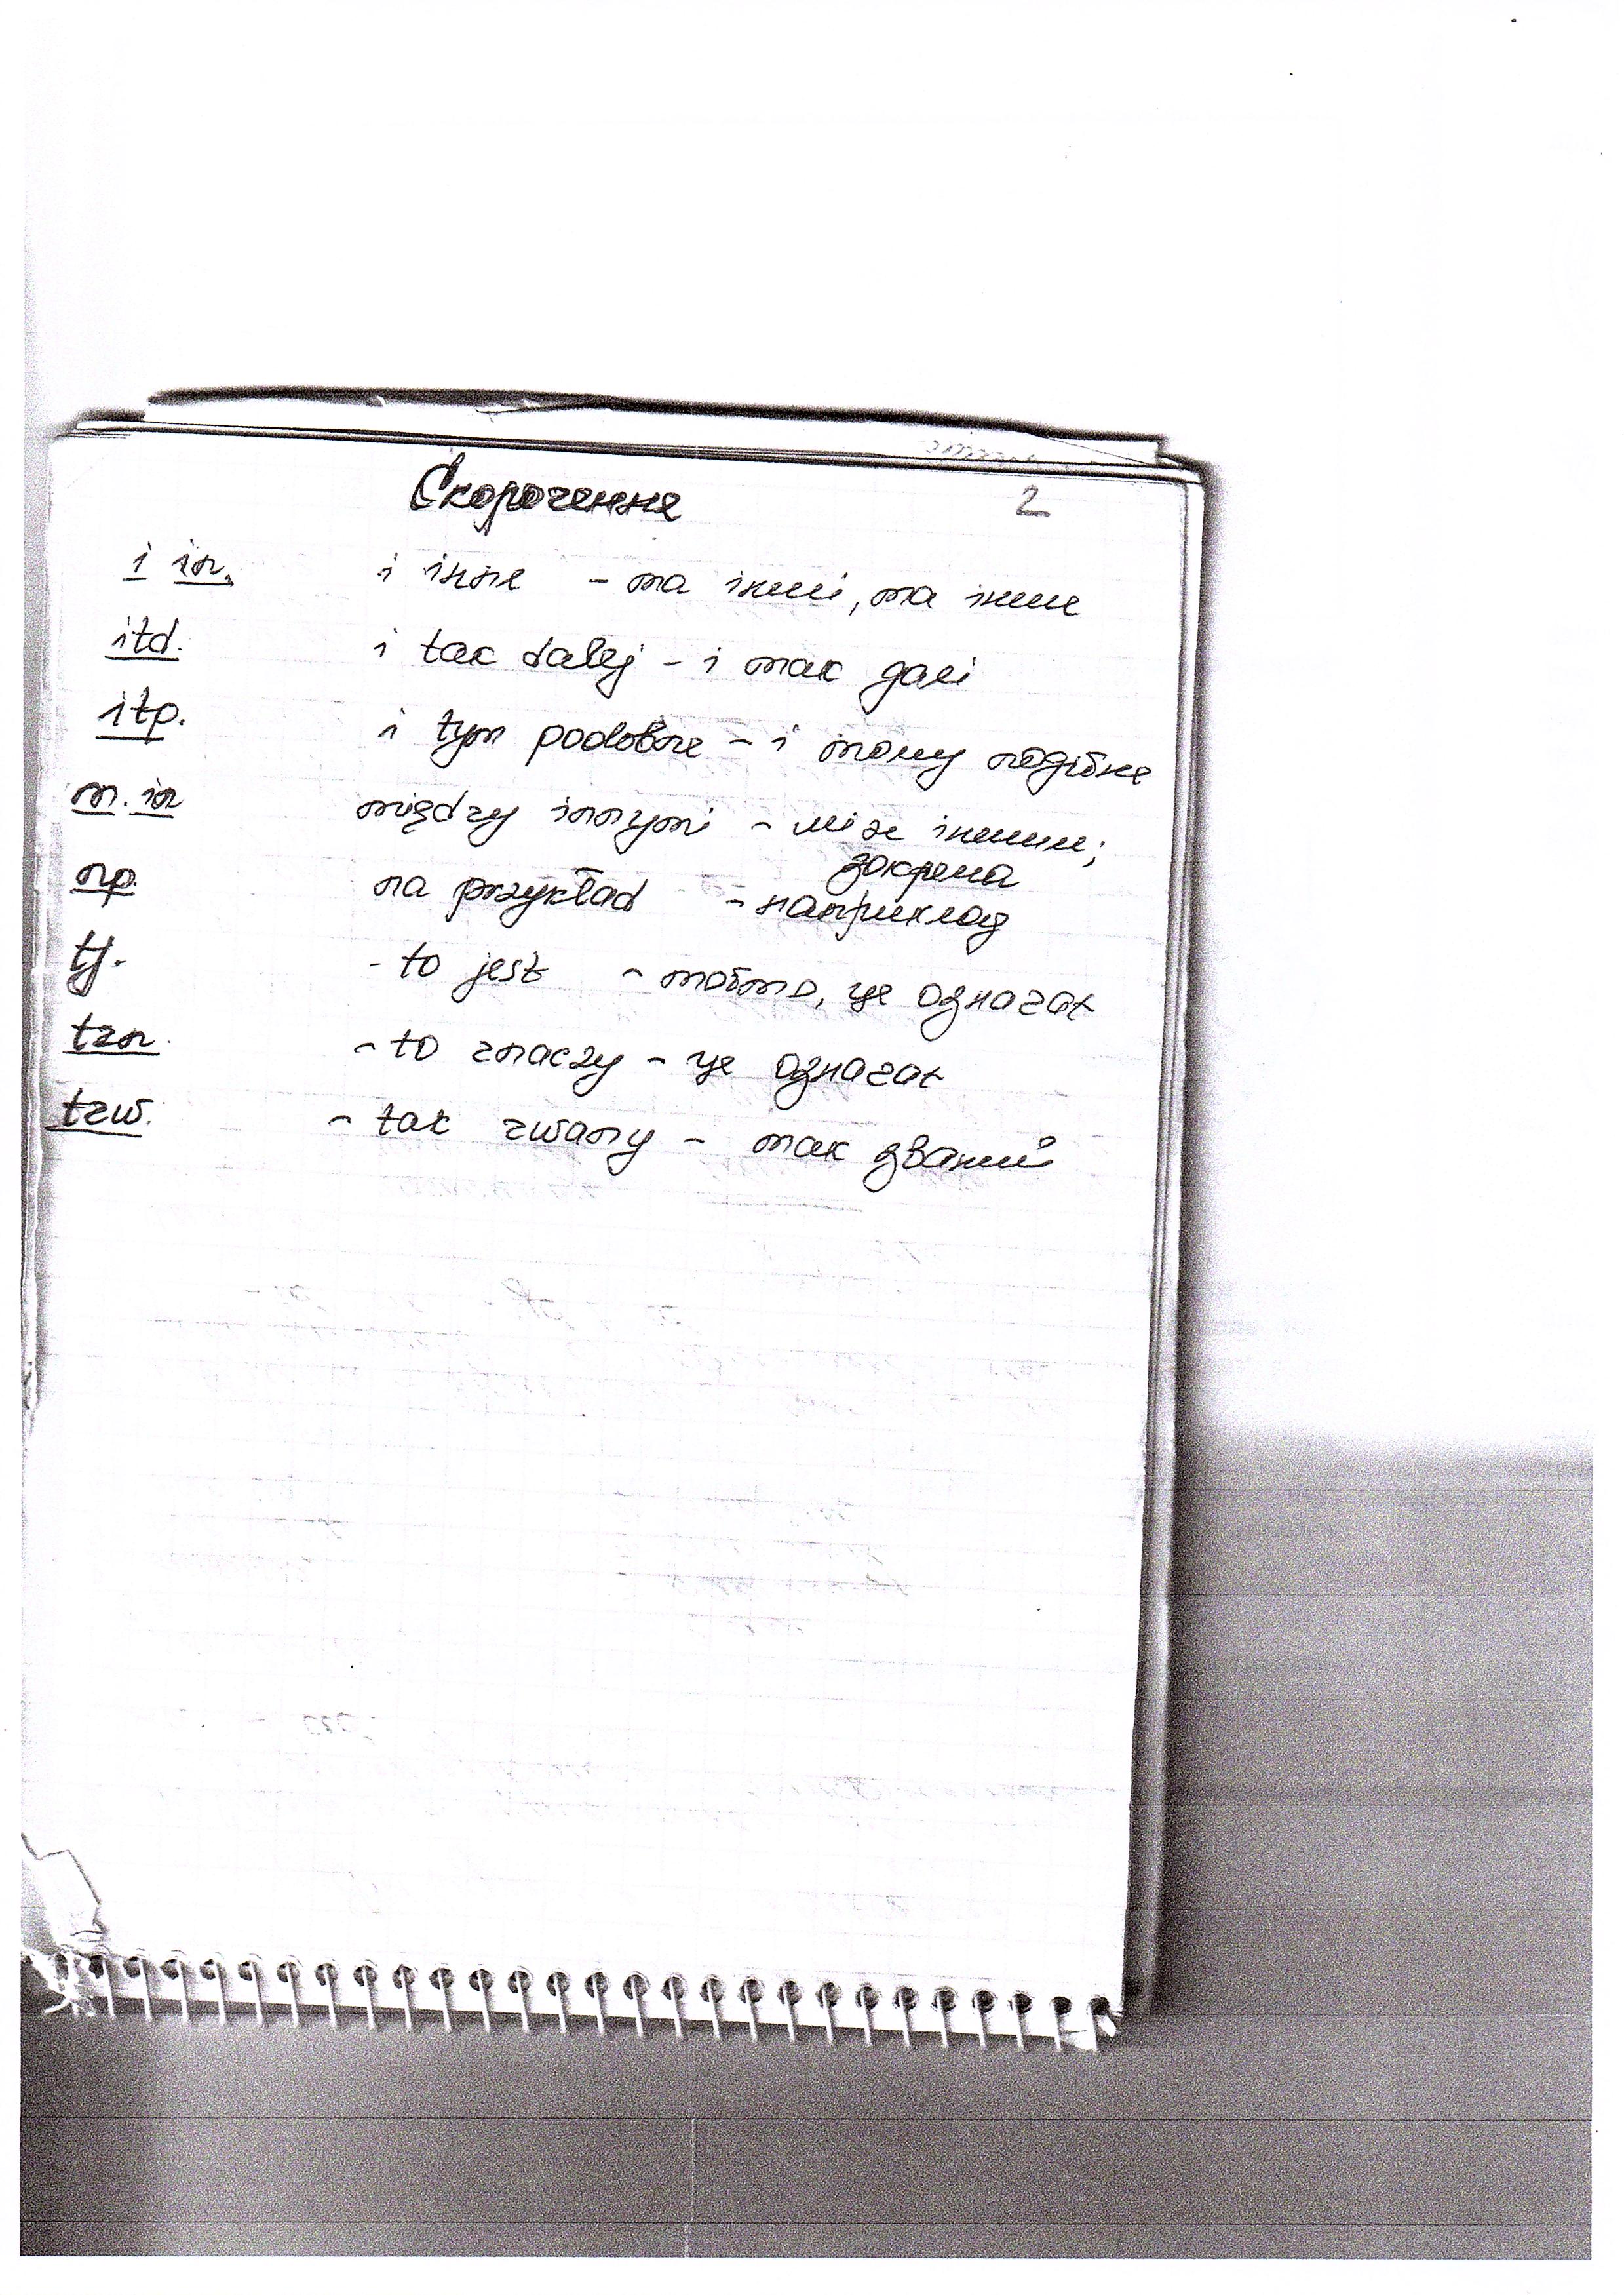 Скорочення 2
i in. i інне - та інші, та інше
itd. i tak dalej - і так далі
itp. i tym podobne - і тому подібне
m. in między innymi - між іншим;
зокрема
np. na przykład - наприклад
tj. - to jest - тобто, це означає
tzn. - to znaczy - це означає
tzw. - tak zwany - так званий